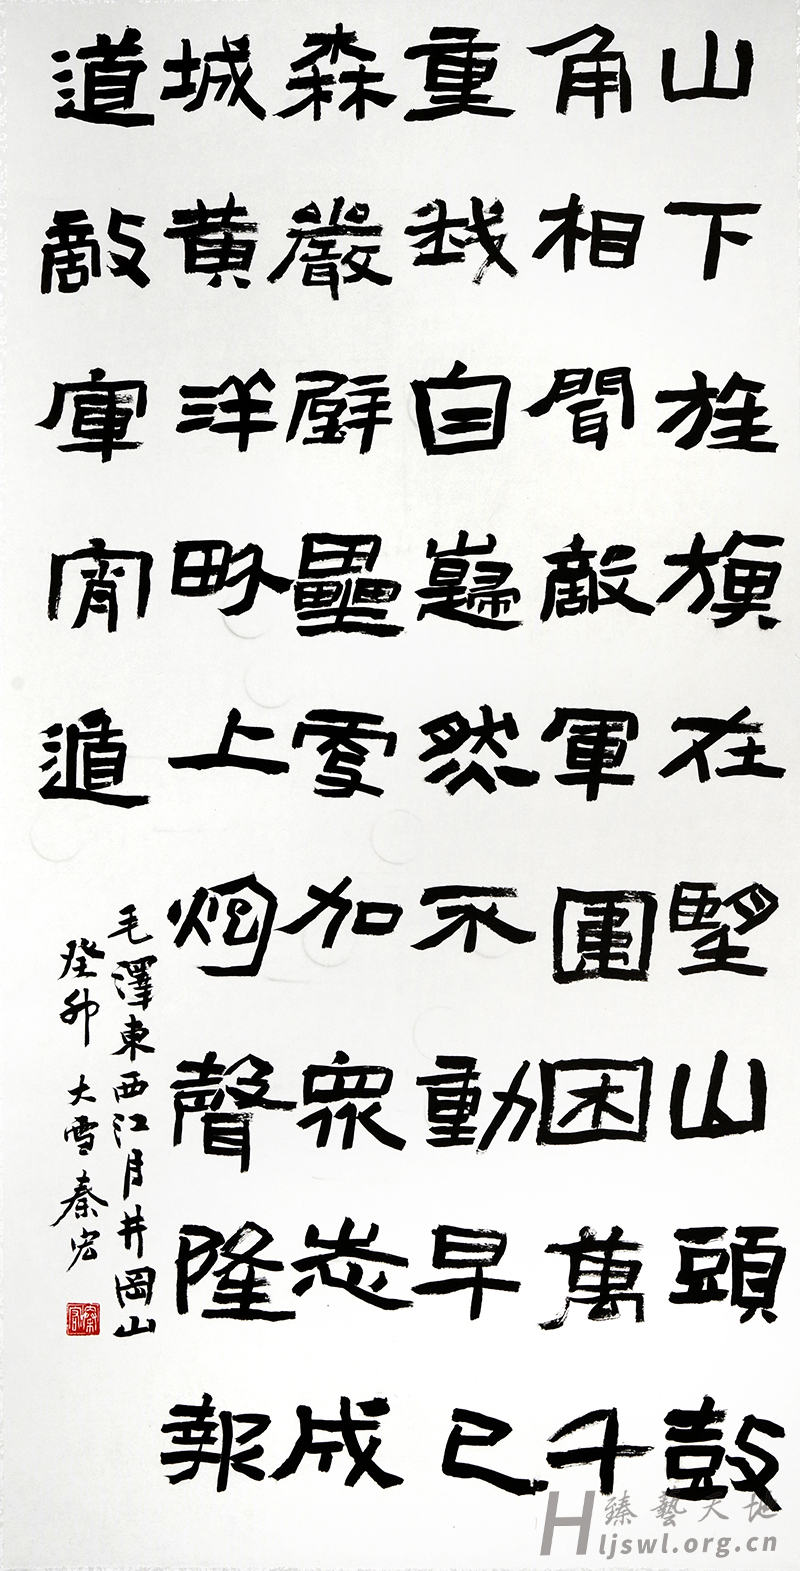 山下旌旗在朢山頭鼓
角相聞敵軍圍困萬千
重我自巋然不動早已
森嚴壁壘更加眾志成
城黃洋畍上炮聲隆報
道敵軍宵遁
毛澤東西江月井岡山
癸卯大雪秦宏
秦宏
臻藝天地
Hljswl.org.cn